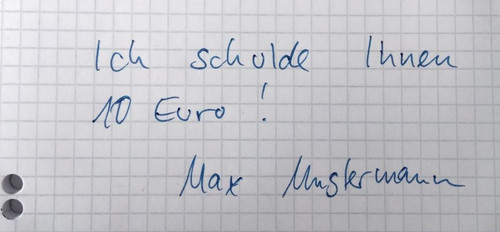 Ich schulde Ihnen
10 Euro!
Max Mustermann